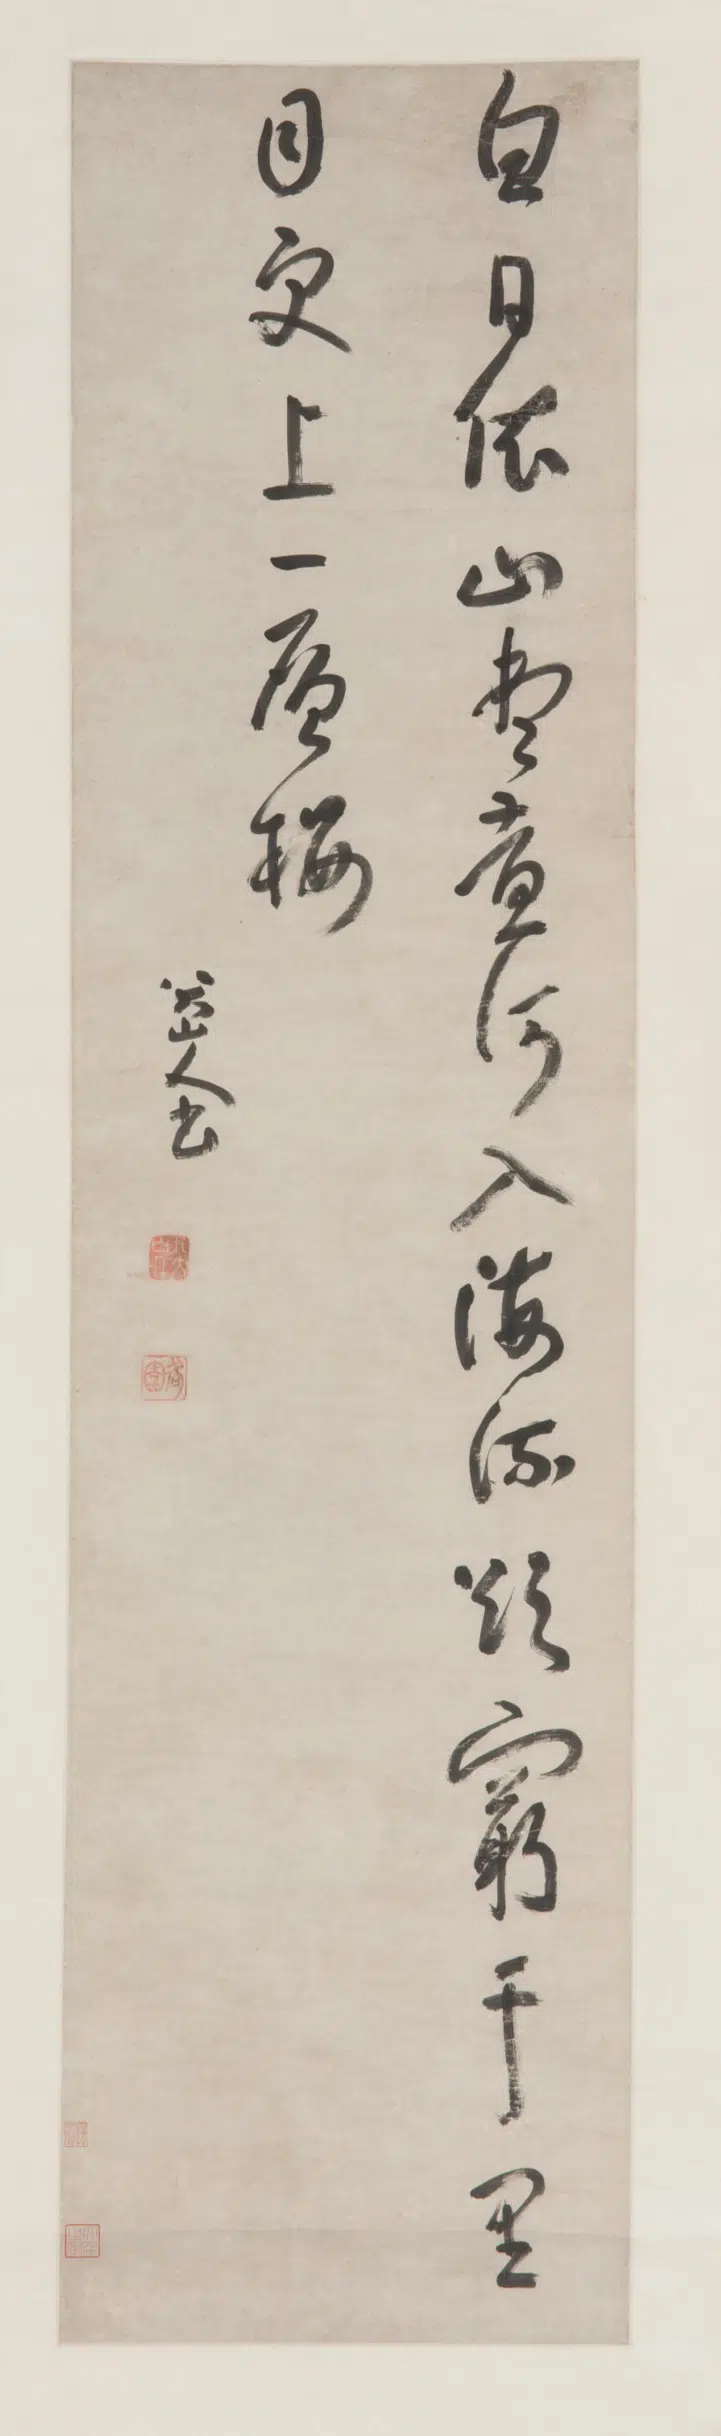 白日依山盡黃河入海流欲窮千里
目更上一層樓
八大山人書